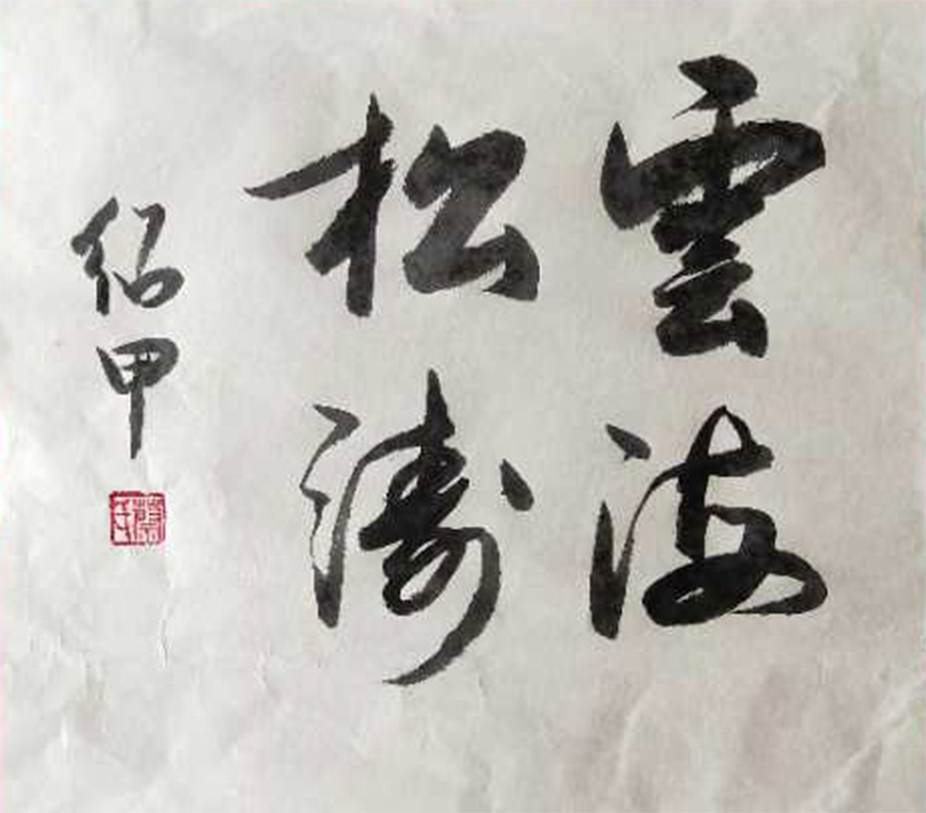 雲海
松濤
绍甲